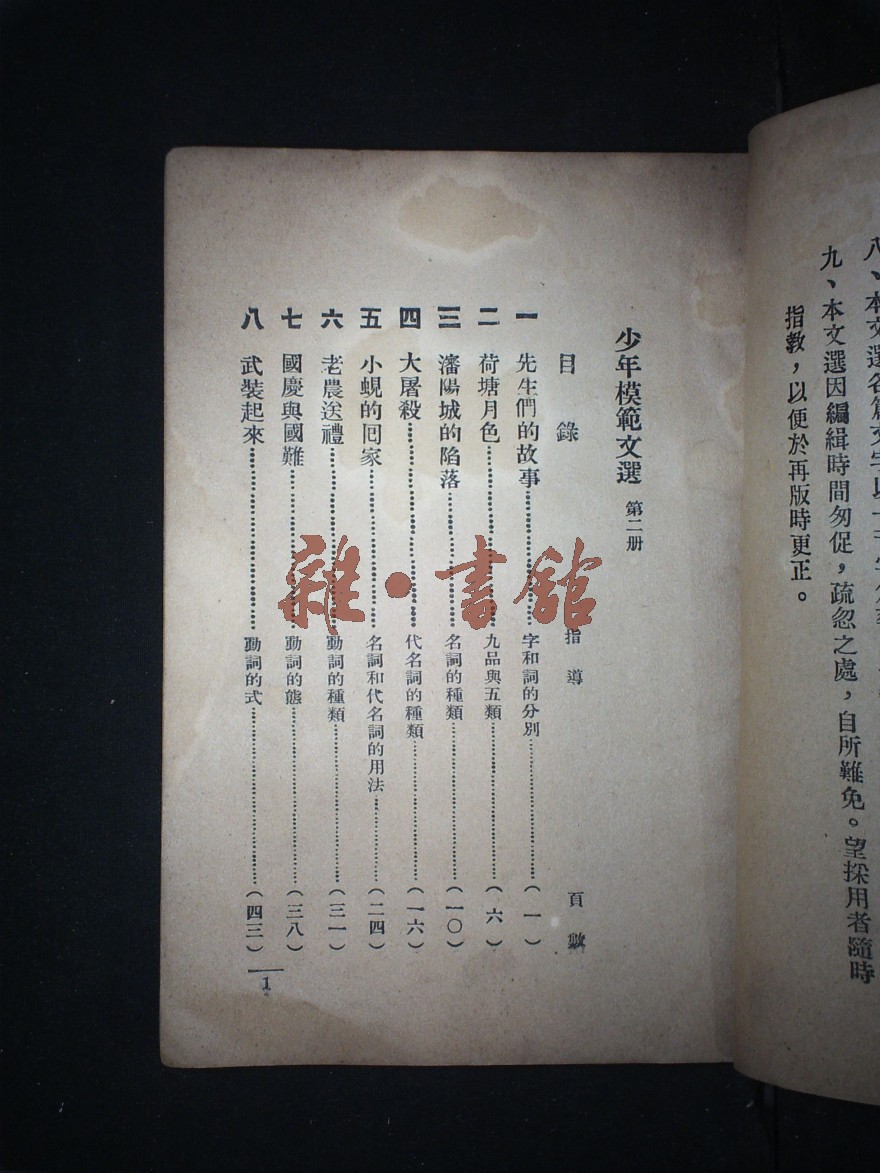 八、本文選各篇文字以
九、本文選因編緝時間匆促，疏忽之處，自所難免。望採用者隨時
指教，以便於再版時更正。
少年模範文選 第二册
目錄 指導 頁數
一 先生們的故事 字和詞的分別 （一）
二 荷塘月色 九品與五類 （六）
三 瀋陽城的陷落 名詞的種類 （一〇）
四 大屠殺 代名詞的種類 （一六）
五 小蜆的囘家 名詞和代名詞的用法 （二四）
六 老農送禮 動詞的種類 （三一）
七 國慶與國難 動詞的態 （三八）
八 武裝起來 動詞的式 （四三）
1
雜·書館